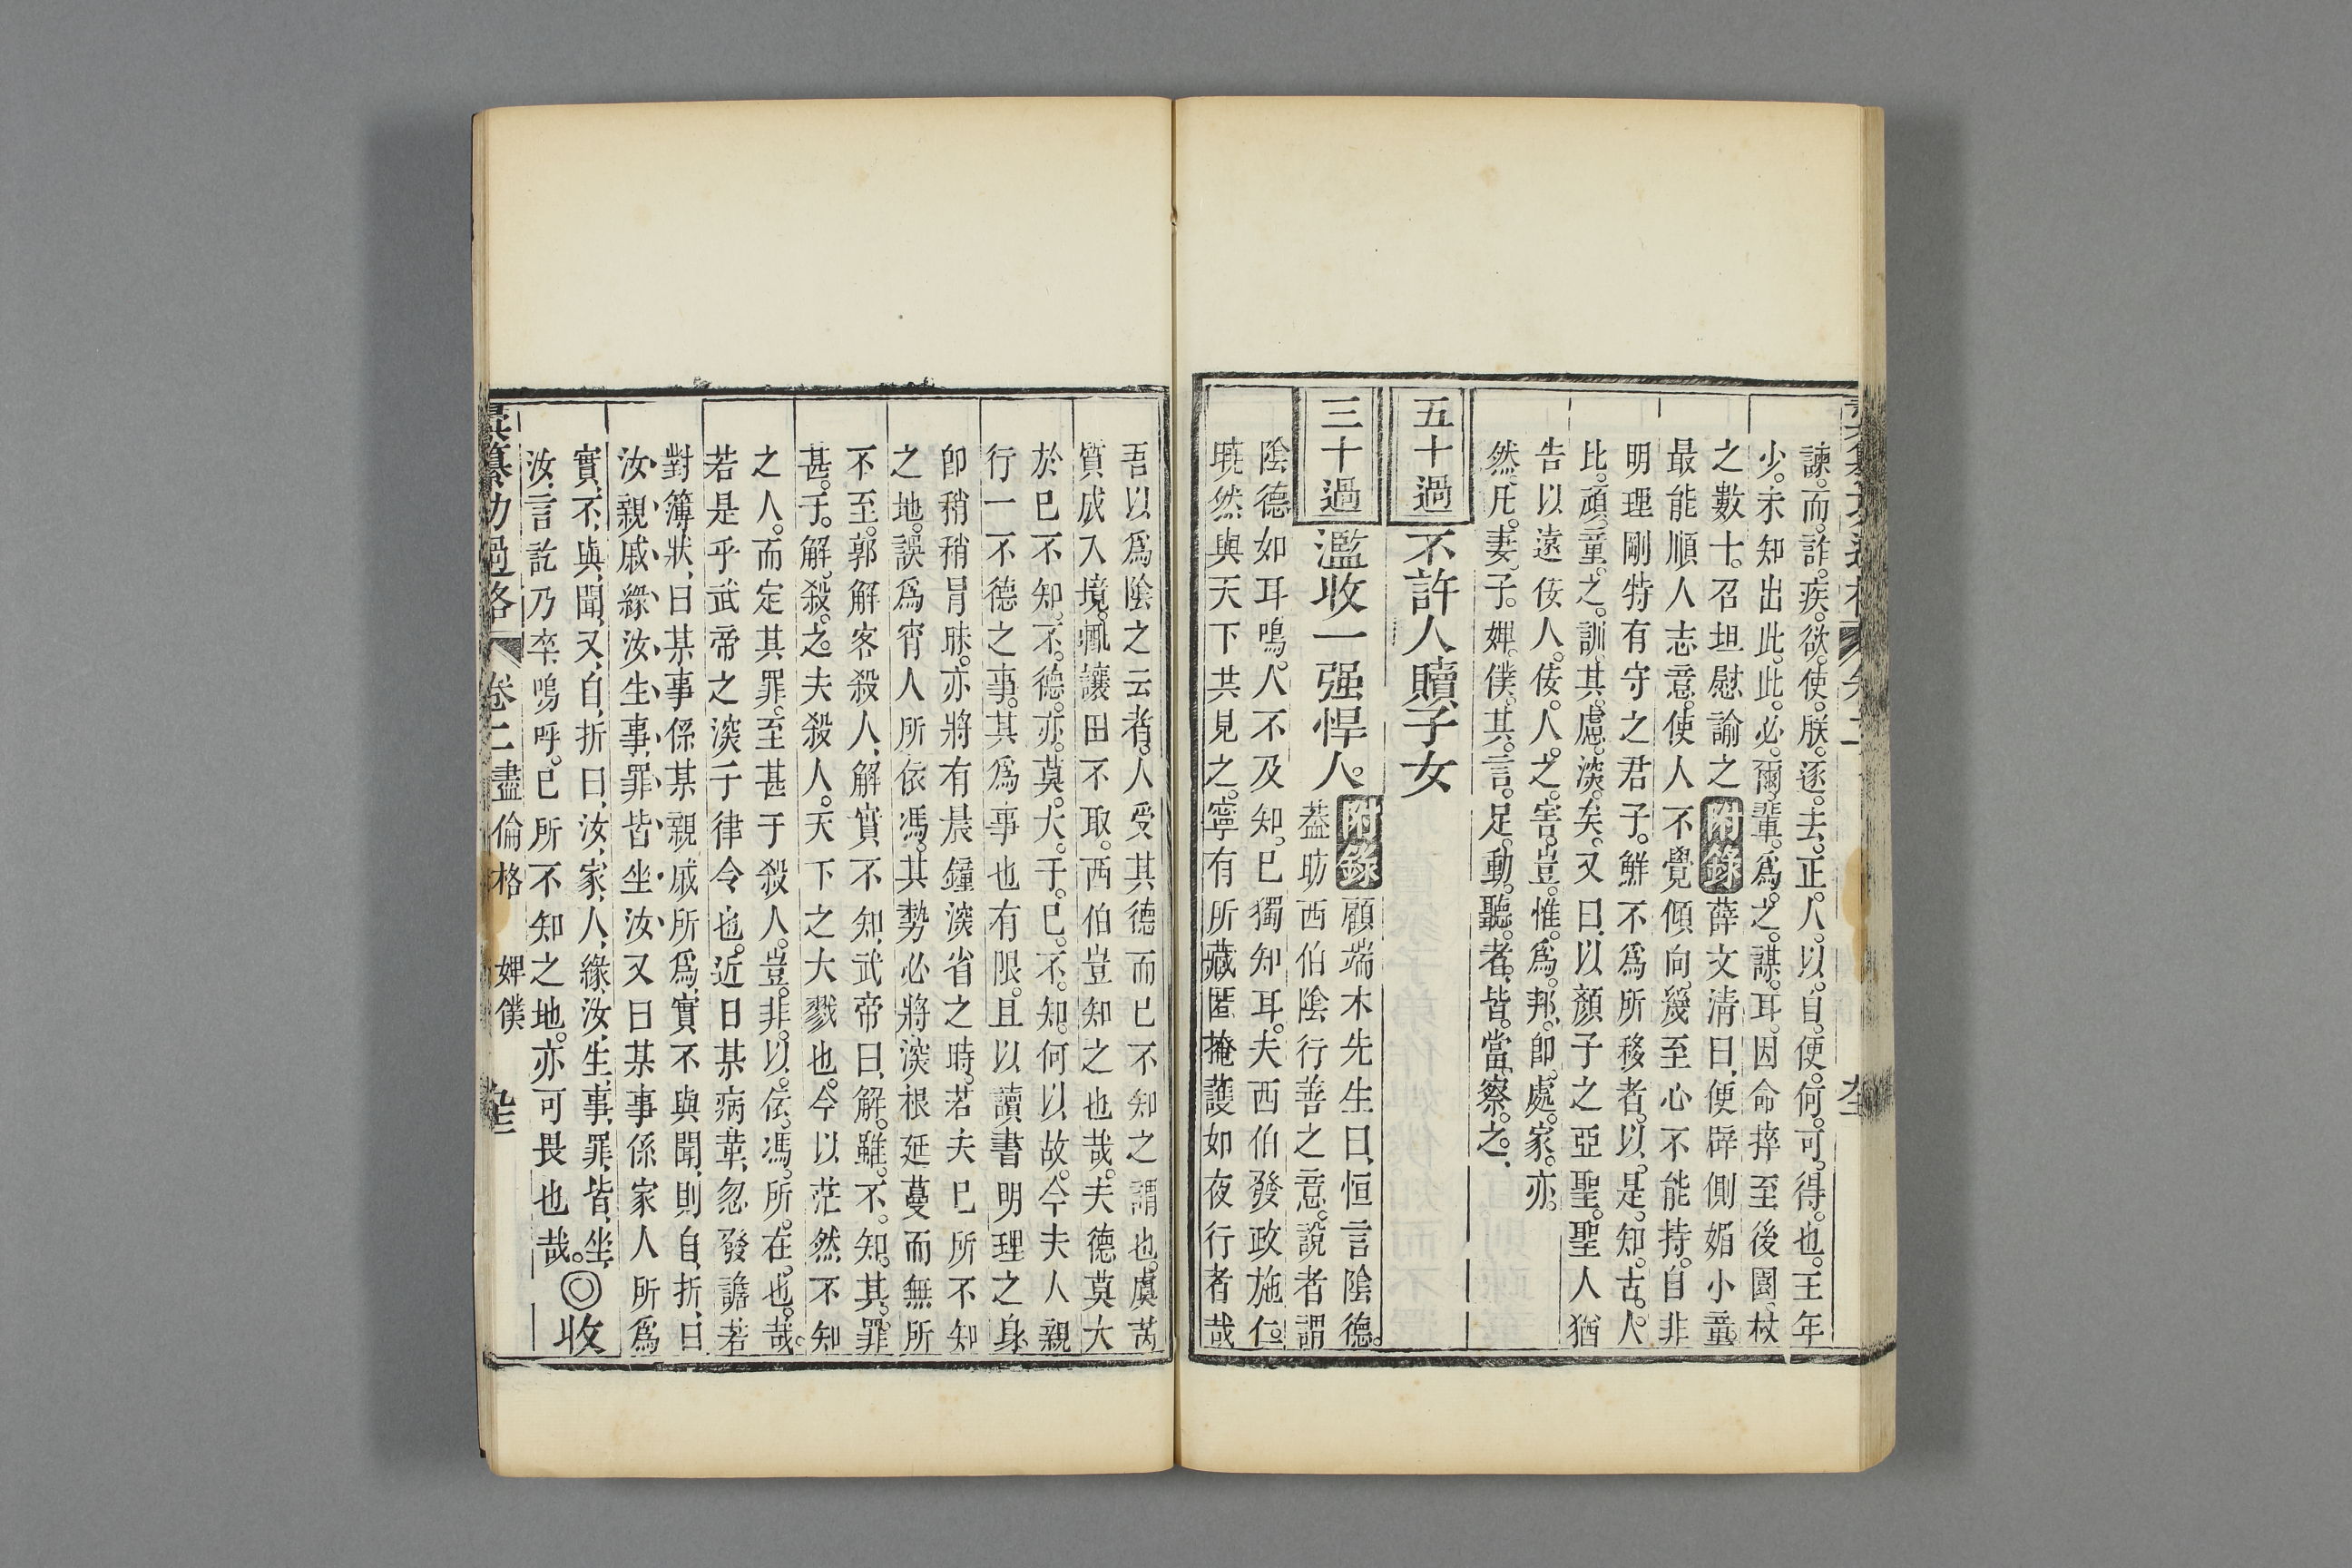 諫。而。詐。疾。欲。使。朕。逐。去。正。人。以。自。便。何。可。得。也。王年
少。未知出此。此。必。爾。輩。爲。之。謀。耳。因命捽至後園、杖
之數十。召坦慰諭之附錄薛文淸曰、便辟側媚小童。
最能順人志意。使人不覺傾向。幾至心不能持。自非
明理剛特有守之君子。鮮不爲所移者。以。是。知。古。人。
比。頑。童。之。訓。其。慮。深。矣。又曰、以顏子之亞聖。聖人猶
告以遠佞人。佞。人。之。害。豈。惟。爲。邦。卽。處。家。亦。
然。凡。妻。子。婢。僕。其。言。足。動。聽。者。皆。當。察。之。
五十過 不許人贖子女
三十過 濫收一强悍人。附錄顧端木先生曰、恒言陰德。
葢昉西伯陰行善之意。說者謂
陰德如耳鳴。人不及知。已獨知耳。夫西伯發政施仁。
曉然與天下共見之。寧有所藏匿掩護如夜行者哉
吾以爲陰之云者。人受其德而已不知之謂也。虞芮
質成入境。輒讓田不取。西伯豈知之也哉。夫德莫大
於已不知。不。德。亦。莫。大。于。已。不。知。何以故。今夫人親
行一不德之事。其爲事也有限。且以讀書明理之身、
卽稍稍冐昧。亦將有晨鐘深省之時。若夫已所不知
之地。誤爲宵人所依馮。其勢必將深根延蔓而無所
不至。郭解客殺人、解實不知、武帝曰、解。雖。不。知。其。罪
甚。于。解。殺。之。夫殺人。天下之大戮也。今以茫然不知
之人。而定其罪。至甚于殺人。豈。非。以。依。馮。所。在。也。哉。
若是乎武帝之深于律令也。近日某病革、忽發譫若
對簿狀、曰某事係某親戚所爲、實不與聞、則自折、曰
汝親戚緣汝生事、罪皆坐汝、又曰某事係家人所爲
實、不、與、聞、又、自、折曰、汝、家、人、緣、汝、生、事、罪、皆、坐、
汝、言訖乃卒。嗚呼。已所不知之地。亦可畏也哉。◎收
功過格 卷二盡倫格 婢僕